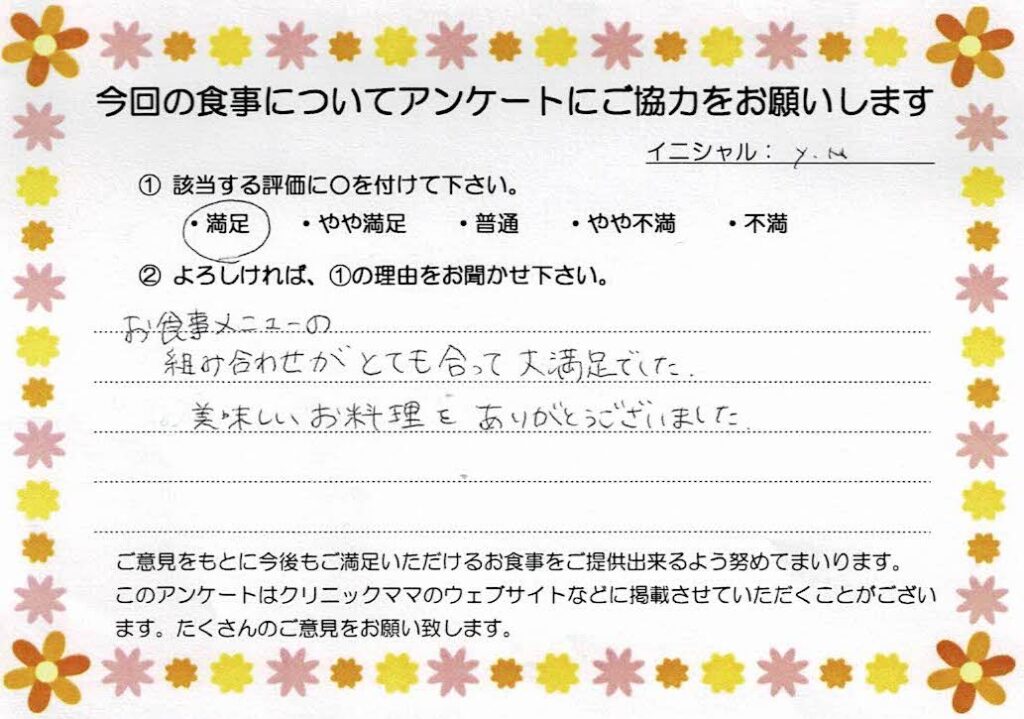 今回の食事についてアンケートにご協力をお願いします
イニシャル： Y.M
① 該当する評価に〇を付けて下さい。
・満足 ・やや満足 ・普通 ・やや不満 ・不満
② よろしければ、①の理由をお聞かせ下さい。
お食事メニューの
組み合わせがとても合って大満足でした.
美味しいお料理を ありがとうございました.
ご意見をもとに今後もご満足いただけるお食事をご提供出来るよう努めてまいります。
このアンケートはクリニックママのウェブサイトなどに掲載させていただくことがござい
ます。たくさんのご意見をお願い致します。